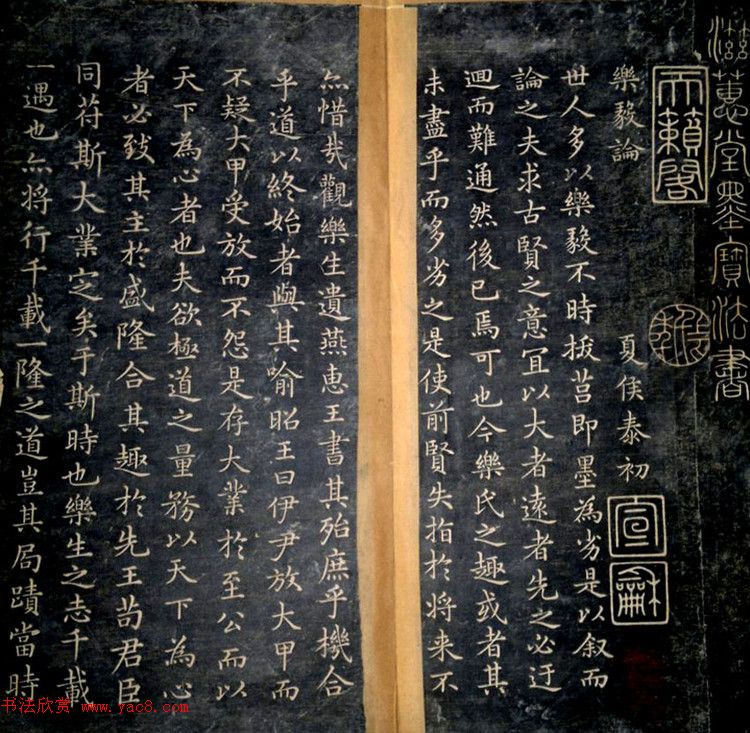 滋蕙堂墨寶法書
天籟閣
樂毅論
夏侯泰初
宣
龢
世人多以樂毅不時拔莒即墨為劣是以叙而
論之夫求古賢之意冝以大者遠者先之必迂
迴而難通然後已焉可也今樂氏之趣或者其
未盡乎而多劣之是使前賢失指於將来不
亦惜㢤觀樂生遺燕惠王書其殆庶乎機合
乎道以終始者與其喻昭王曰伊尹放大甲而
不疑大甲受放而不怨是存大業於至公而以
天下為心者也夫欲極道之量務以天下為心
者必致其主於盛隆合其趣於先王苟君臣
同苻斯大業定矣于斯時也樂生之志千載
一遇也亦將行千載一隆之道豈其局蹟當時
书法欣赏 www.yac8.com